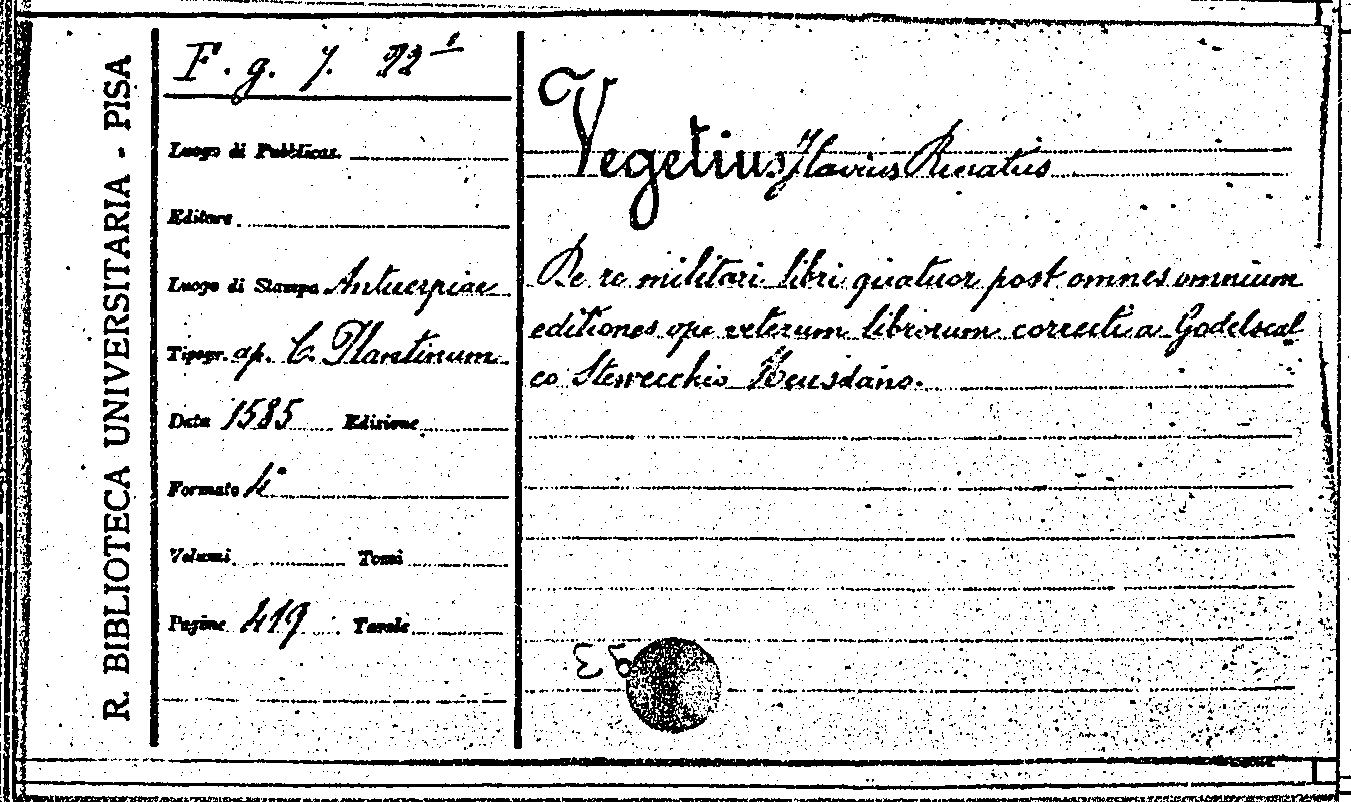 R. BIBLIOTECA UNIVERSITARIA - PISA
F. g. 7. 22¹
Luogo di Pubblicaz.
Editore
Luogo di Stampa Antuerpiae
Tipogr. ap. C. Plantinum
Data 1585 Edizione
Formato 4°
Volumi Tomi
Pagine 419 Tavole
Vegetius Flavius Renatus
De re militari libri quatuor post omnes omnium
editiones ope veterum librorum correcti a Godelscal
co Stewecchio Heusdano.